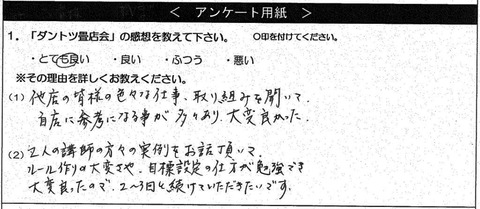 ＜ アンケート用紙 ＞
1．「ダントツ畳店会」の感想を教えて下さい。 ○印を付けてください。
・とても良い ・良い ・ふつう ・悪い
※その理由を詳しくお教えください。
(1) 他店の皆様の色々な仕事、取り組みを聞いて、
自店に参考になる事が多々あり、大変良かった。
(2) 2人の講師の方々の実例をお話頂いて、
ルール作りの大変さや、目標設定の仕方が勉強でき
大変良ったので、2〜3日と続けていただきたいです。